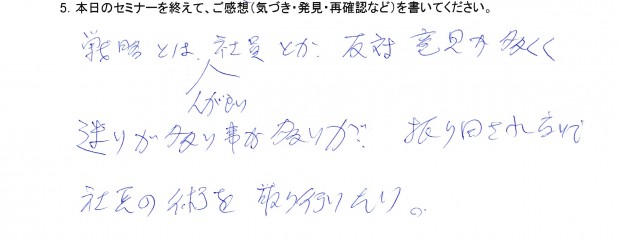 5. 本日のセミナーを終えて、ご感想(気づき・発見・再確認など)を書いてください。
戦略とは、社員とか、反対意見が多くく
人が良い
迷いが多い事が多いが、振り回されないで
社長の術を取り行いたい。